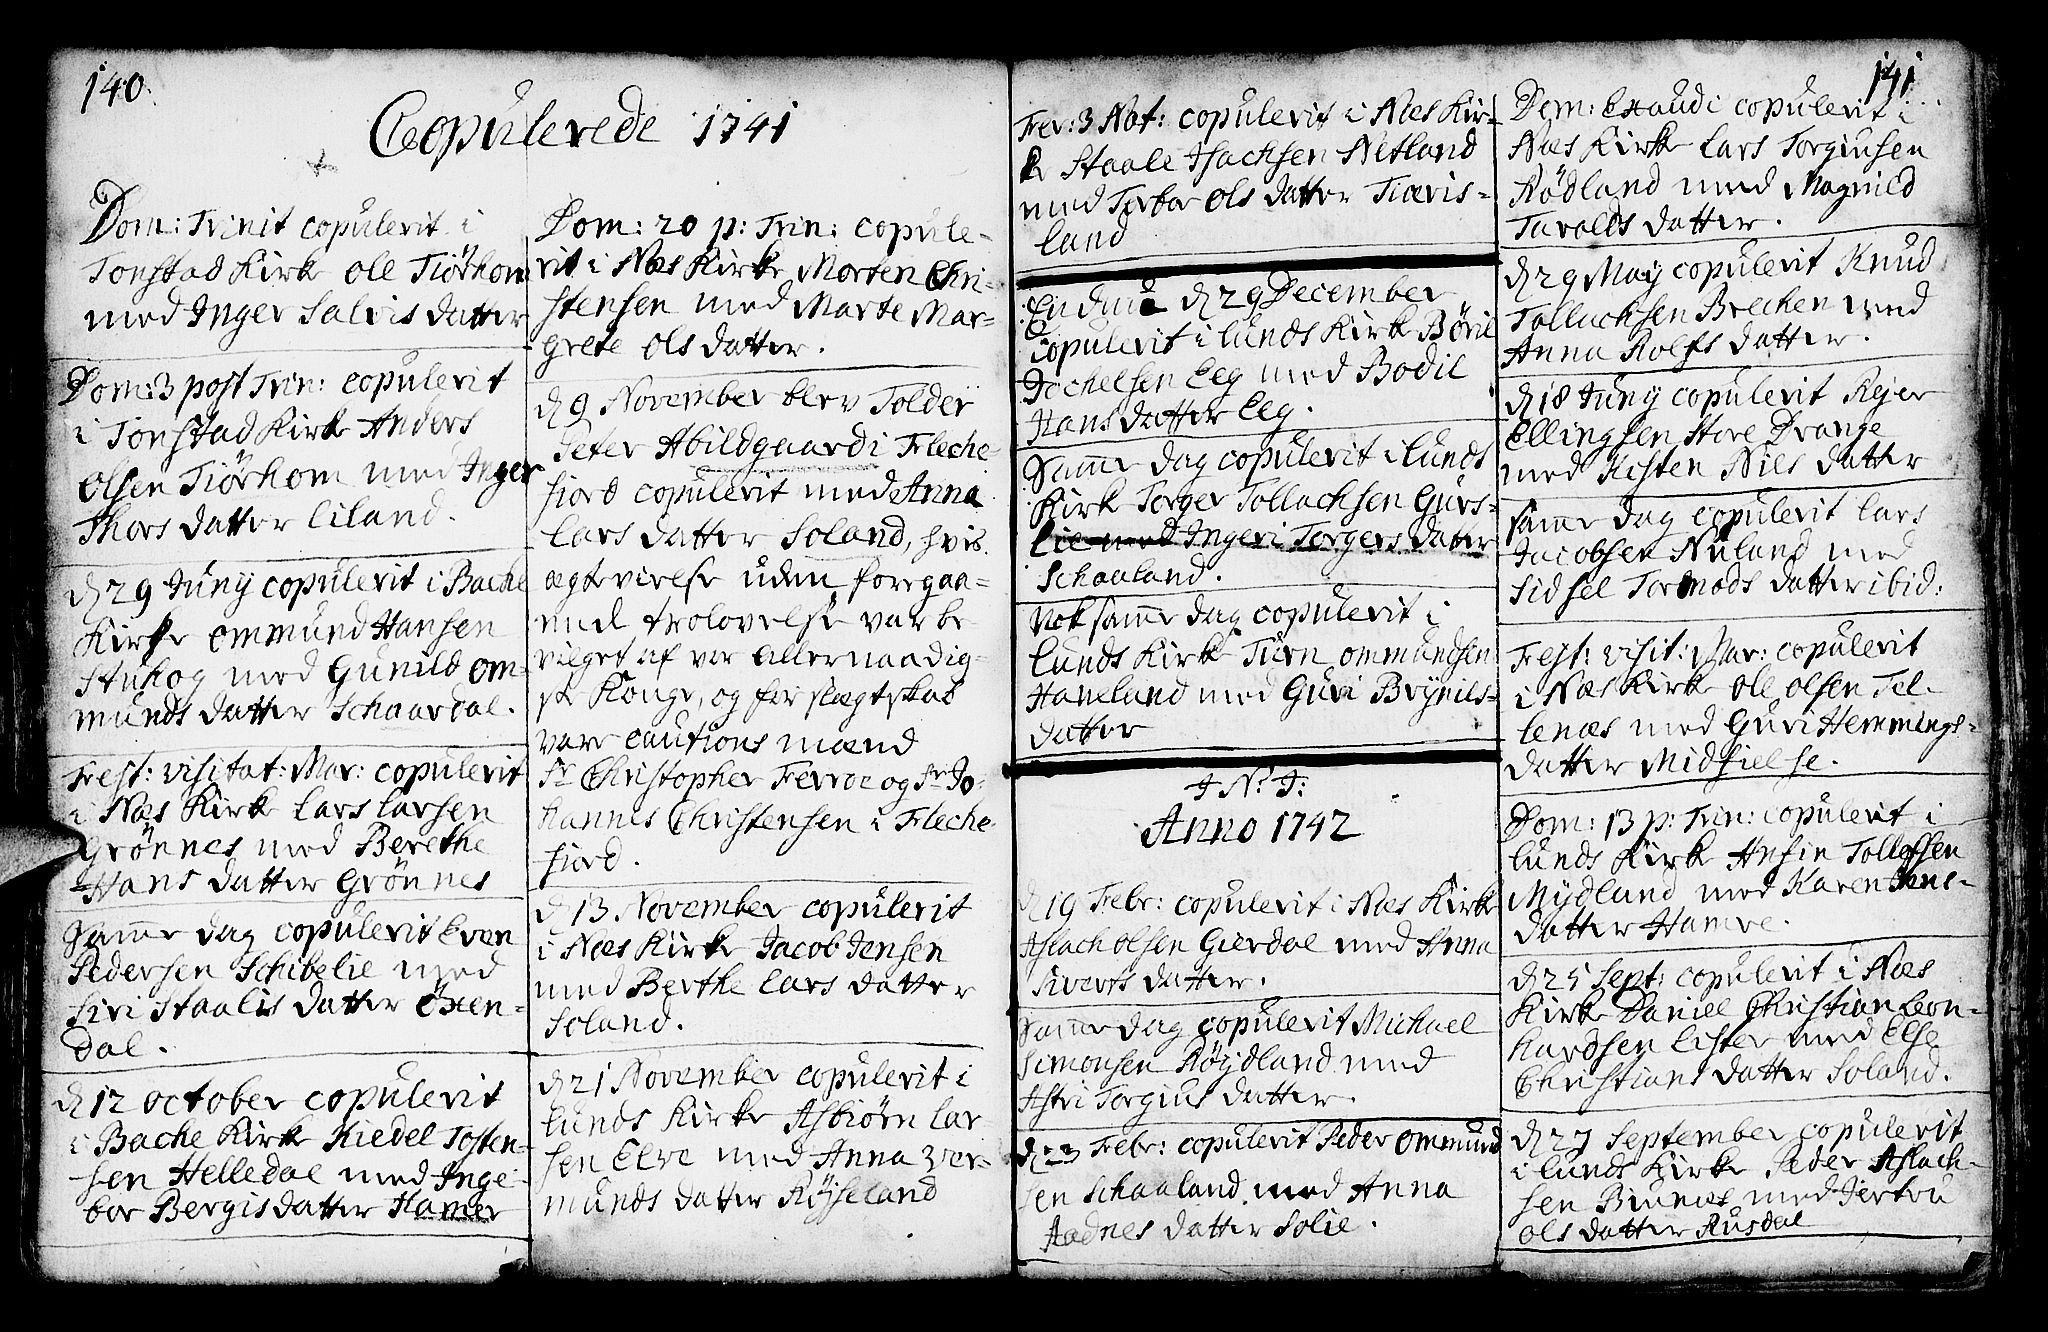 140
Copulerede 1741
Dom: Trinit copulerit i
Tonstad Kirk Ole Tiörhom
med Inger Salvis datter
Dom: 3 post Trin: copulerit
i Tonstad Kirk Anders
Olsen Tiörhom med Inger
Thors datter Liland.
d 29 Junÿ copulerit i Bache
Kirke Ommund Hansen
Stuhog med Gunild Om-
munds datter Schaardal.
Fest: visitat: Mar: copulerit
i Næs Kirk Lars Larsen
Grönnes med Berethe
Hans datter Grönnes
Samme dag copulerit Even
Pedersen Schibelie med
Siri Staalis datter Öxen-
dal.
d 12 October copulerit
i Bache Kirk Kiedel Tosten-
sen Helledal med Inge-
bor Bergis datter Hamer
Dom: 20 p: Trin: copule-
rit i Næs Kirke Morten Chri-
stensen med Marte Mar-
grete Ols datter.
d 9 November blev Tolder
Peter Abildgaard i Fleche-
fiord copulerit med Anna
Lars datter Soland, hvis
ægtevielse uden foregaa-
ende trolovelse var be-
vilget af vor allernaadig-
ste Konge, og for slægtskab
vare cautions mænd
Sr Christopher Ferroe og Sr Jo-
hannes Christensen i Fleche-
fiord.
d 13 November copulerit
i Næs Kirke Jacob Jensen
med Berthe Lars datter
Soland.
d 21 November copulerit i
Lunds Kirke Asbiörn Lar-
sen Elve med Anna Ver-
munds datter Röÿseland
141
Fer: 3 Nat: copulerit i Næs Kir-
k Staale Isachsen Netland
med Torbor Ols datter Tiævis-
land
d 29 December
copulerit i Lunds Kirk Börie
Jochelsen Eeg med Bodil
Hans datter Eeg.
Samme dag copulerit i Lunds
Kirk Torger Tollachsen Gurs-
lie med Ingeri Torgers datter
Schaaland.
Nok samme dag copulerit i
Lunds Kirk Tiörn Ommundsen
Haveland med Guri Brÿnils-
datter
J. N. J.
Anno 1742
d 19 Febr: copulerit i Næs Kirke
Aslach Olsen Gierdal med Anna
Siverts datter.
Samme dag copulerit Michael
Simonsen Röÿdland med
Astri Torgius datter.
d 23 Febr: copulerit Peder Ommund
sen Schaaland med Anna
Aadnes datter Solie.
Dom: Exaudi copulerit i
Næs Kirk Lars Torgiusen
Rödland med Magnild
Tavalds datter.
d 29 Maÿ copulerit Knud
Tolluchsen Brechen med
Anna Rolfs datter.
d 18 Junÿ copulerit Rejer
Ellingsen Store Drange
med Kisten Niels datter
samme dag copulerit Lars
Jacobsen Nuland med
Sidsel Tormods datter ibid:
Fest: visit: Mar: copulerit
i Næs Kirk Ole Olsen Tel-
lenæs med Guri Hemmings-
datter Midsielse.
Dom: 13 p: Trin: copulerit i
Lunds Kirk Ansin Tollefsen
Mÿdland med Karen Jens-
datter Hamre.
d 25 Sept: copulerit i Næs
Kirke Daniel Christian Leon-
hardsen Lister med Else
Christians datter Soland.
d 27 September copulerit
i Lunds Kirke Peder Aslach-
sen Biunes med Jertru
Ols datter Rusdal